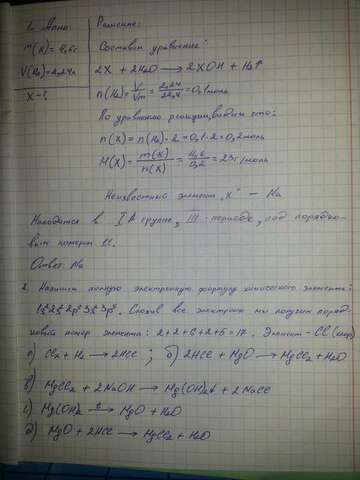 1. Дано:
Решение:
m(X) = 4,6г
Составим уравнение:
V(H₂)=2,24л
2X + 2H₂O ⟶ 2XOH + H₂↑
X - ?
n(H₂) = V/Vm = 2,24/22,4 = 0,1 моль
По уравнению реакции, видим что:
n(X) = n(H₂)·2 = 0,1·2 = 0,2 моль
M(X) = m(X)/n(X) = 4,6/0,2 = 23г/моль
Неизвестный элемент „X“ — Na
Находится в IA группе, III периоде, под порядко-
вым номером 11.
Ответ: Na
2. Напишем полную электронную формулу химического элемента:
1s²2s²2p⁶3s²3p⁵. Сложив все электроны мы получим поряд-
ковый номер элемента: 2+2+6+2+5=17. Элемент - Cl (хлор)
а) Cl₂ + H₂ ⟶ 2HCl ; б) 2HCl + MgO ⟶ MgCl₂ + H₂O
в) MgCl₂ + 2NaOH ⟶ Mg(OH)₂↓ + 2NaCl
г) Mg(OH)₂ ⟶ MgO + H₂O
д) MgO + 2HCl ⟶ MgCl₂ + H₂O